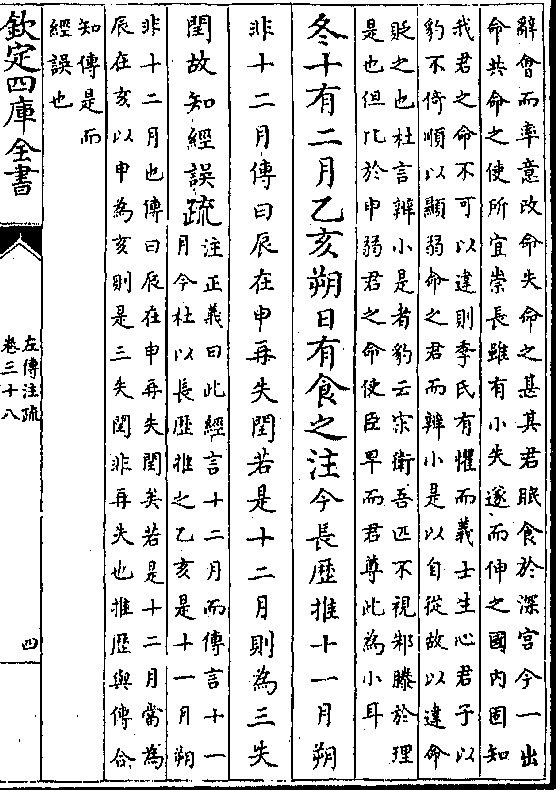 辭會而率意改命失命之甚其君眠食於深宮今一出
命共命之使所宜崇長雖有小失遂而伸之國内固知
我君之命不可以違則季氏有懼而義士生心君子以
豹不倚順以顯弱命之君而辨小是以自從故以違命
貶之也杜言辨小是者豹云宋衛吾匹不視邾滕於理
是也但比於申弱君之命使臣卑而君尊此為小耳
冬十有二月乙亥朔日有食之注今長歷推十一月朔
非十二月傳曰辰在申再失閏若是十二月則為三失
閏故知經誤疏
注正義曰此經言十二月而傳言十一
月今杜以長歷推之乙亥是十一月朔
非十二月也傳曰辰在申再失閏矣若是十二月當為
辰在亥以申為亥則是三失閏非再失也推歷與傳合
知傳是而
經誤也
欽定四庫全書
左傳注疏
卷三十八
四